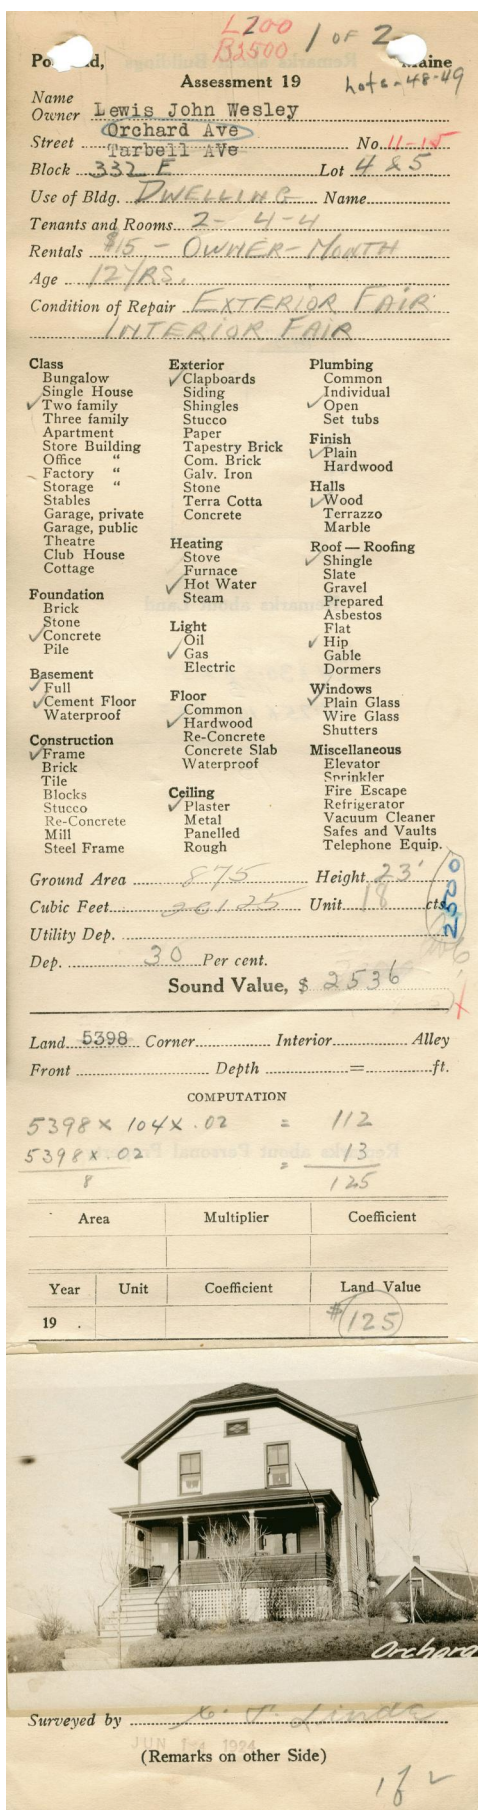 L200
B2500
1 OF 2
Po nd, Maine
Assessment 19
Lots-48-49
Name
Owner Lewis John Wesley
Orchard Ave
Street Tarbell AVe No. 11-15
Block 332 E Lot 4 & 5
Use of Bldg. DWELLING Name
Tenants and Rooms 2- 4-4
Rentals $15 - OWNER - MONTH
Age 12 YRS.
Condition of Repair EXTERIOR FAIR
INTERIOR FAIR
Class
Bungalow
Single House
✓ Two family
Three family
Apartment
Store Building
Office "
Factory "
Storage "
Stables
Garage, private
Garage, public
Theatre
Club House
Cottage
Foundation
Brick
Stone
✓ Concrete
Pile
Basement
✓ Full
✓ Cement Floor
Waterproof
Construction
✓ Frame
Brick
Tile
Blocks
Stucco
Re-Concrete
Mill
Steel Frame
Exterior
✓ Clapboards
Siding
Shingles
Stucco
Paper
Tapestry Brick
Com. Brick
Galv. Iron
Stone
Terra Cotta
Concrete
Heating
Stove
Furnace
✓ Hot Water
Steam
Light
Oil
✓ Gas
Electric
Floor
Common
✓ Hardwood
Re-Concrete
Concrete Slab
Waterproof
Ceiling
✓ Plaster
Metal
Panelled
Rough
Plumbing
Common
Individual
✓ Open
Set tubs
Finish
✓ Plain
Hardwood
Halls
✓ Wood
Terrazzo
Marble
Roof — Roofing
✓ Shingle
Slate
Gravel
Prepared
Asbestos
Flat
✓ Hip
Gable
Dormers
Windows
✓ Plain Glass
Wire Glass
Shutters
Miscellaneous
Elevator
Sprinkler
Fire Escape
Refrigerator
Vacuum Cleaner
Safes and Vaults
Telephone Equip.
Ground Area 875 Height 23'
Cubic Feet 20125 Unit 18 cts.
2500
Utility Dep.
Dep. 30 Per cent.
Sound Value, $ 2536
Land 5398 Corner Interior Alley
Front Depth = ft.
COMPUTATION
5398 x 104 x .02 = 112
5398 x .02 = 13
8 125
Area Multiplier Coefficient
Year Unit Coefficient Land Value
19 . $125
Orchard
Surveyed by
JUN 14 1924
(Remarks on other Side)
1 of 2